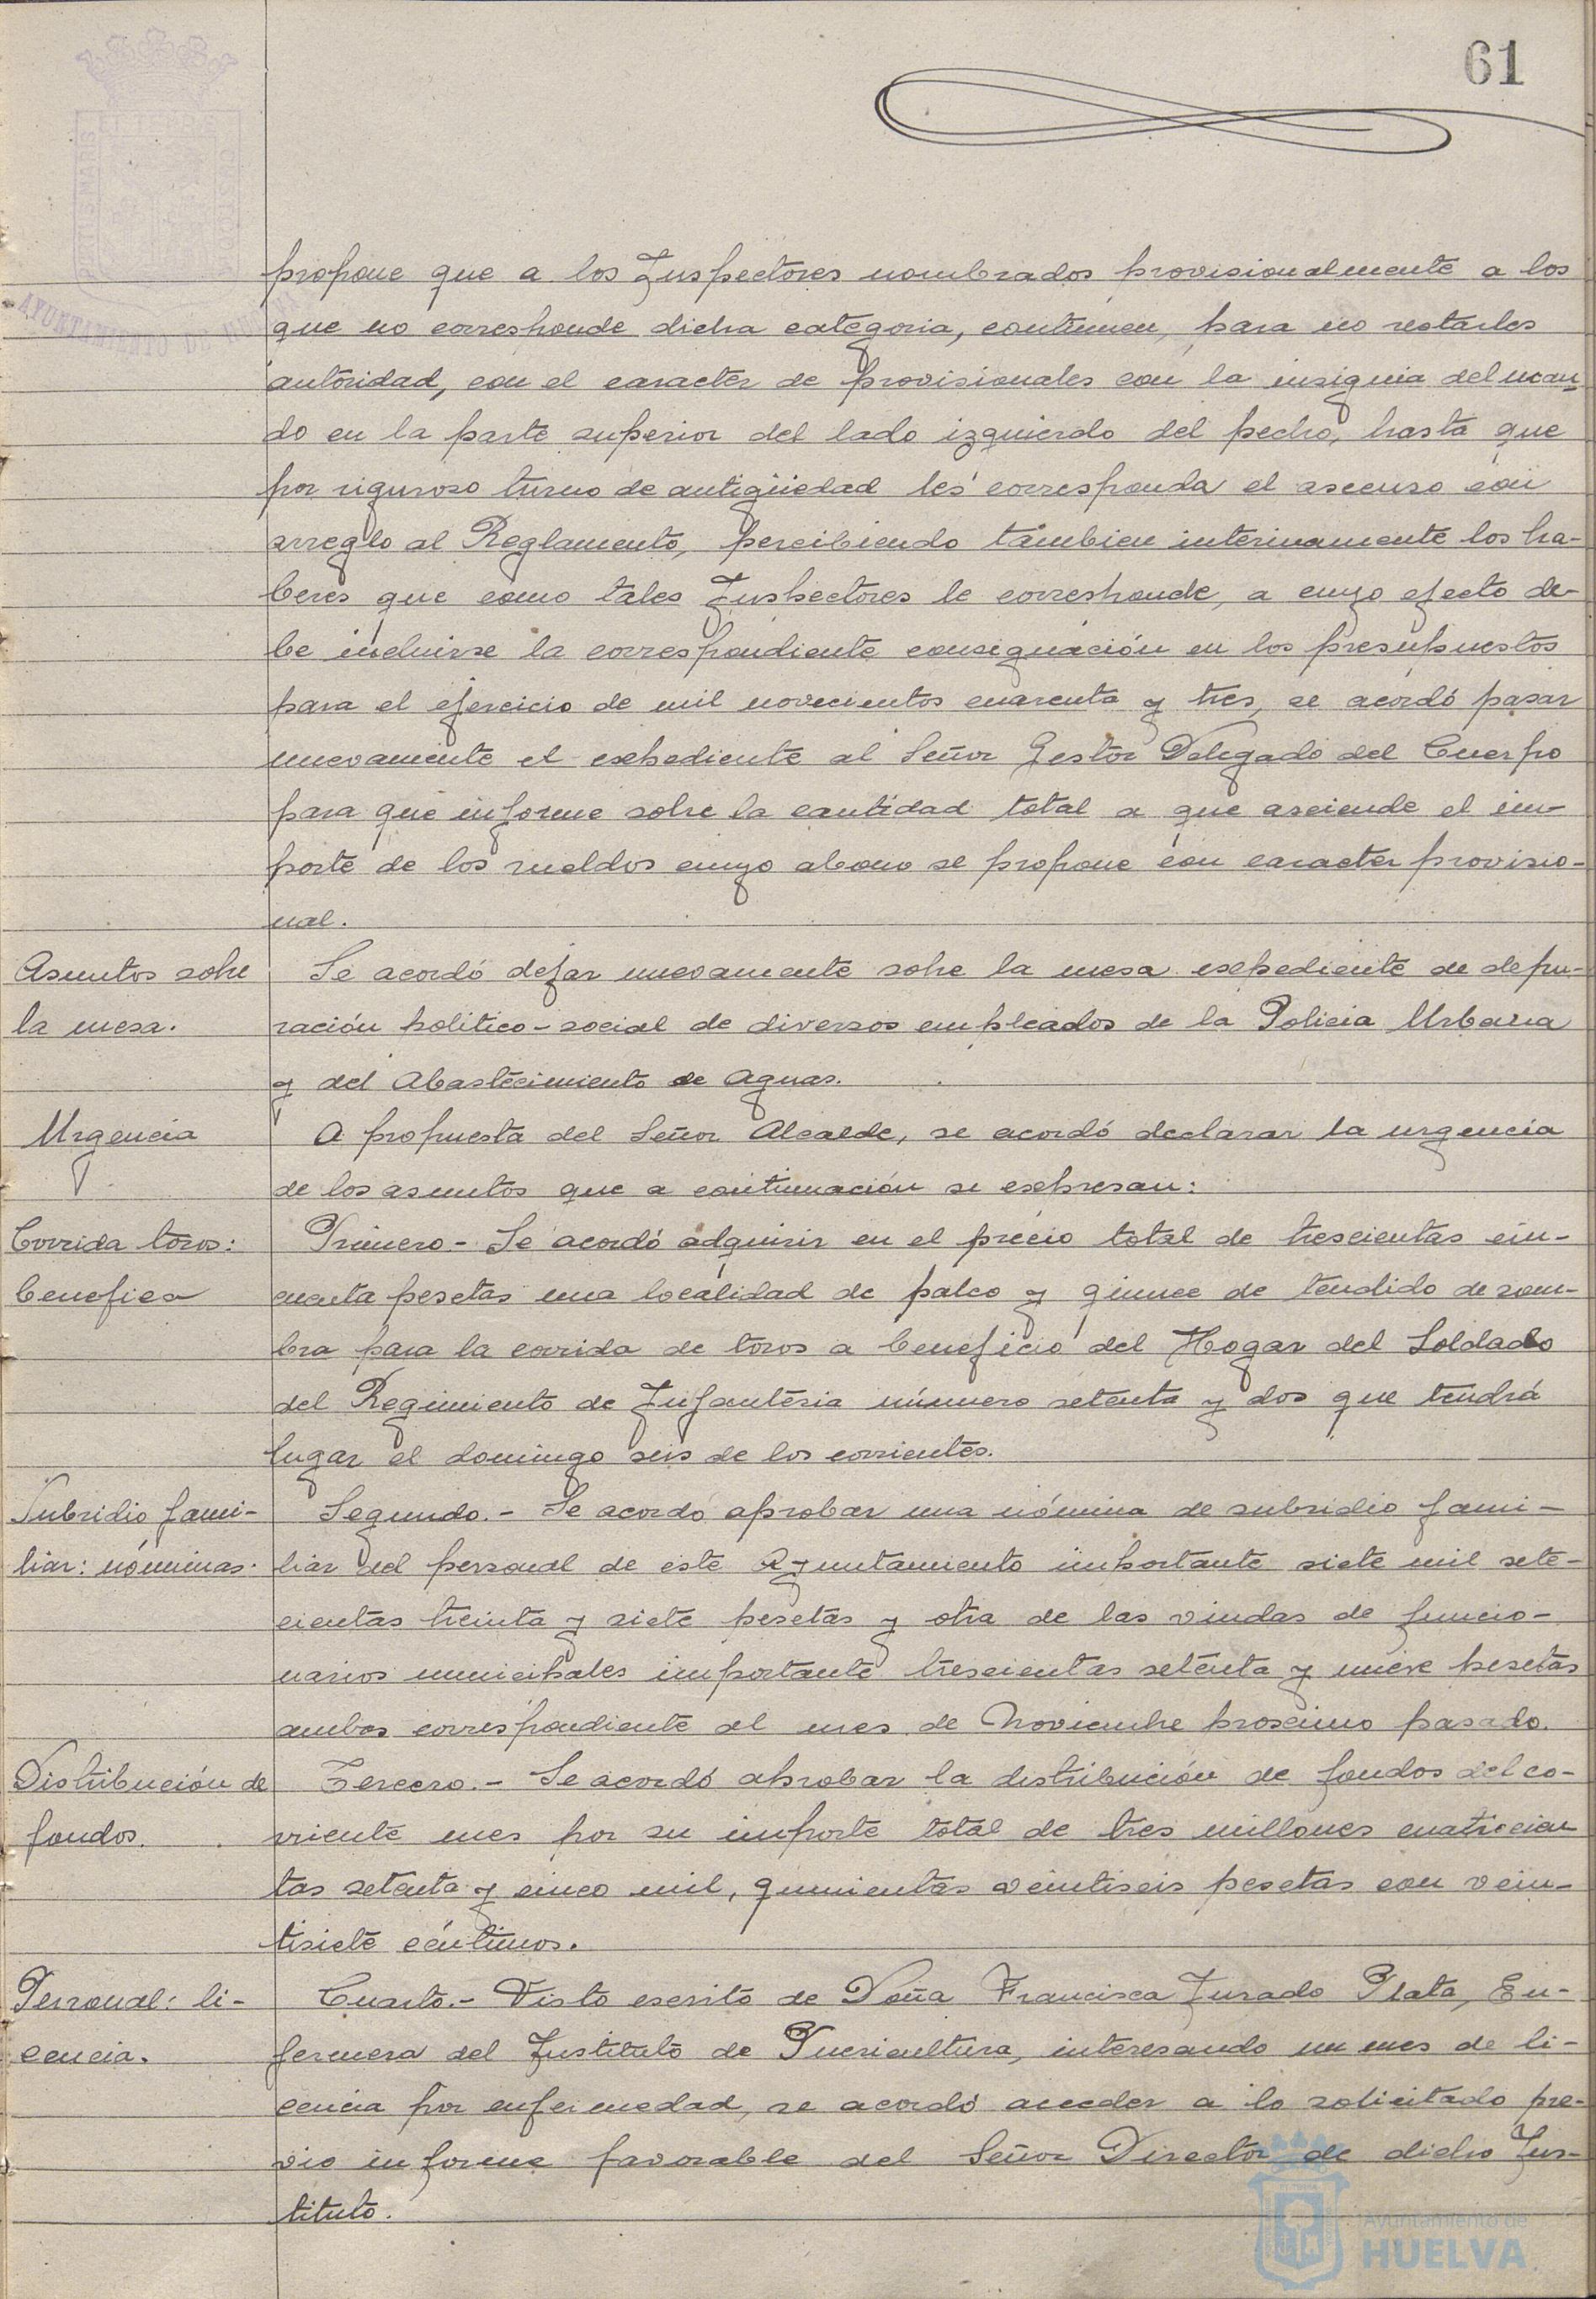 61
PORTUS MARIS ET TERRE CUSTODIA
AYUNTAMIENTO DE HUELVA
propone que a los Inspectores nombrados provisionalmente a los
que no corresponde dicha categoria, continuen, para no restarles
autoridad, con el caracter de provisionales con la insignia del man-
do en la parte superior del lado izquierdo del pecho, hasta que
por riguroso turno de antigüedad les corresponda el ascenso con
arreglo al Reglamento, percibiendo tambien interinamente los ha-
beres que como tales Inspectores le corresponde, a cuyo efecto de-
be incluirse la correspondiente consignación en los presupuestos
para el ejercicio de mil novecientos cuarenta y tres, se acordó pasar
nuevamente el expediente al Señor Gestor Delegado del Cuerpo
para que informe sobre la cantidad total a que asciende el im-
porte de los sueldos cuyo abono se propone con caracter provisio-
nal.
Asuntos sobre
la mesa.
Se acordó dejar nuevamente sobre la mesa expediente de depu-
ración politico-social de diversos empleados de la Policia Urbana
y del Abastecimiento de Aguas.
Urgencia
A propuesta del Señor Alcalde, se acordó declarar la urgencia
de los asuntos que a continuación se expresan:
Corrida toros:
benefica
Primero.- Se acordó adquirir en el precio total de trescientas cin-
cuenta pesetas una localidad de palco y quince de tendido de som-
bra para la corrida de toros a beneficio del Hogar del Soldado
del Regimiento de Infanteria número setenta y dos que tendrá
lugar el domingo seis de los corrientes.
Subsidio fami-
liar: nóminas.
Segundo.- Se acordó aprobar una nómina de subsidio fami-
liar del personal de este Ayuntamiento importante siete mil sete-
cientas treinta y siete pesetas y otra de las viudas de funcio-
narios municipales importante trescientas setenta y nueve pesetas
ambas correspondiente al mes de Noviembre proximo pasado.
Distribución de
fondos.
Tercero.- Se acordó aprobar la distribución de fondos del co-
rriente mes por su importe total de tres millones cuatrocien
tas setenta y cinco mil, quinientas veintiseis pesetas con vein-
tisiete céntimos.
Personal: li-
cencia.
Cuarto.- Visto escrito de Doña Francisca Jurado Plata, En-
fermera del Instituto de Puericultura, interesando un mes de li-
cencia por enfermedad, se acordó acceder a lo solicitado pre-
vio informe favorable del Señor Director de dicho Ins-
tituto.
Ayuntamiento de
HUELVA